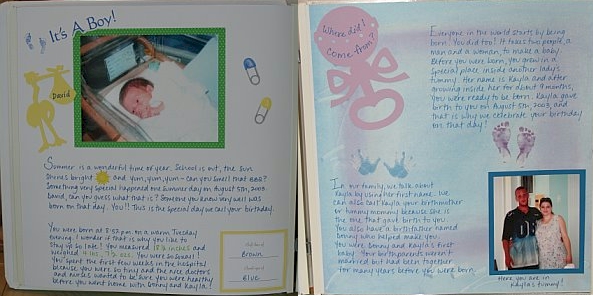 It's A Boy!
David
Summer is a wonderful time of year. School is out, the sun
shines bright and yum, yum, yum - can you smell that BBQ?
Something very special happened one summer day on August 5th, 2003
David, can you guess what that is? Someone you know very well was
born on that day. You!! This is the special day we call your birthday.
You were born at 5:52 p.m. on a warm Tuesday
evening. I wonder if that is why you like to
stay up so late! You measured 17 ½ inches and
weighed 4 lbs., 7 ½ ozs. You were so small!
You spent the first few weeks in the hospital
because you were so tiny and the nice doctors
and nurses wanted to be sure you were healthy
before you went home with Sonny and Kayla!
Brown
Blue
Where did I
come from?
Everyone in the world starts by being
born. You did too! It takes two people, a
man and a woman, to make a baby.
Before you were born, you grew in a
special place inside another lady's
tummy. Her name is Kayla and after
growing inside her for about 9 months,
you were ready to be born. Kayla gave
birth to you on August 5th, 2003, and
that is why we celebrate your birthday
on that day!
In our family, we talk about
Kayla by using her first name. We
can also call Kayla your birthmother
or tummy mommy because she is
the one that gave birth to you.
You also have a birthfather named
Sonny who helped make you.
You were Sonny and Kayla's first
baby. Your birthparents weren't
married but had been together
for many years before you were born.
Here you are in
Kayla's tummy!